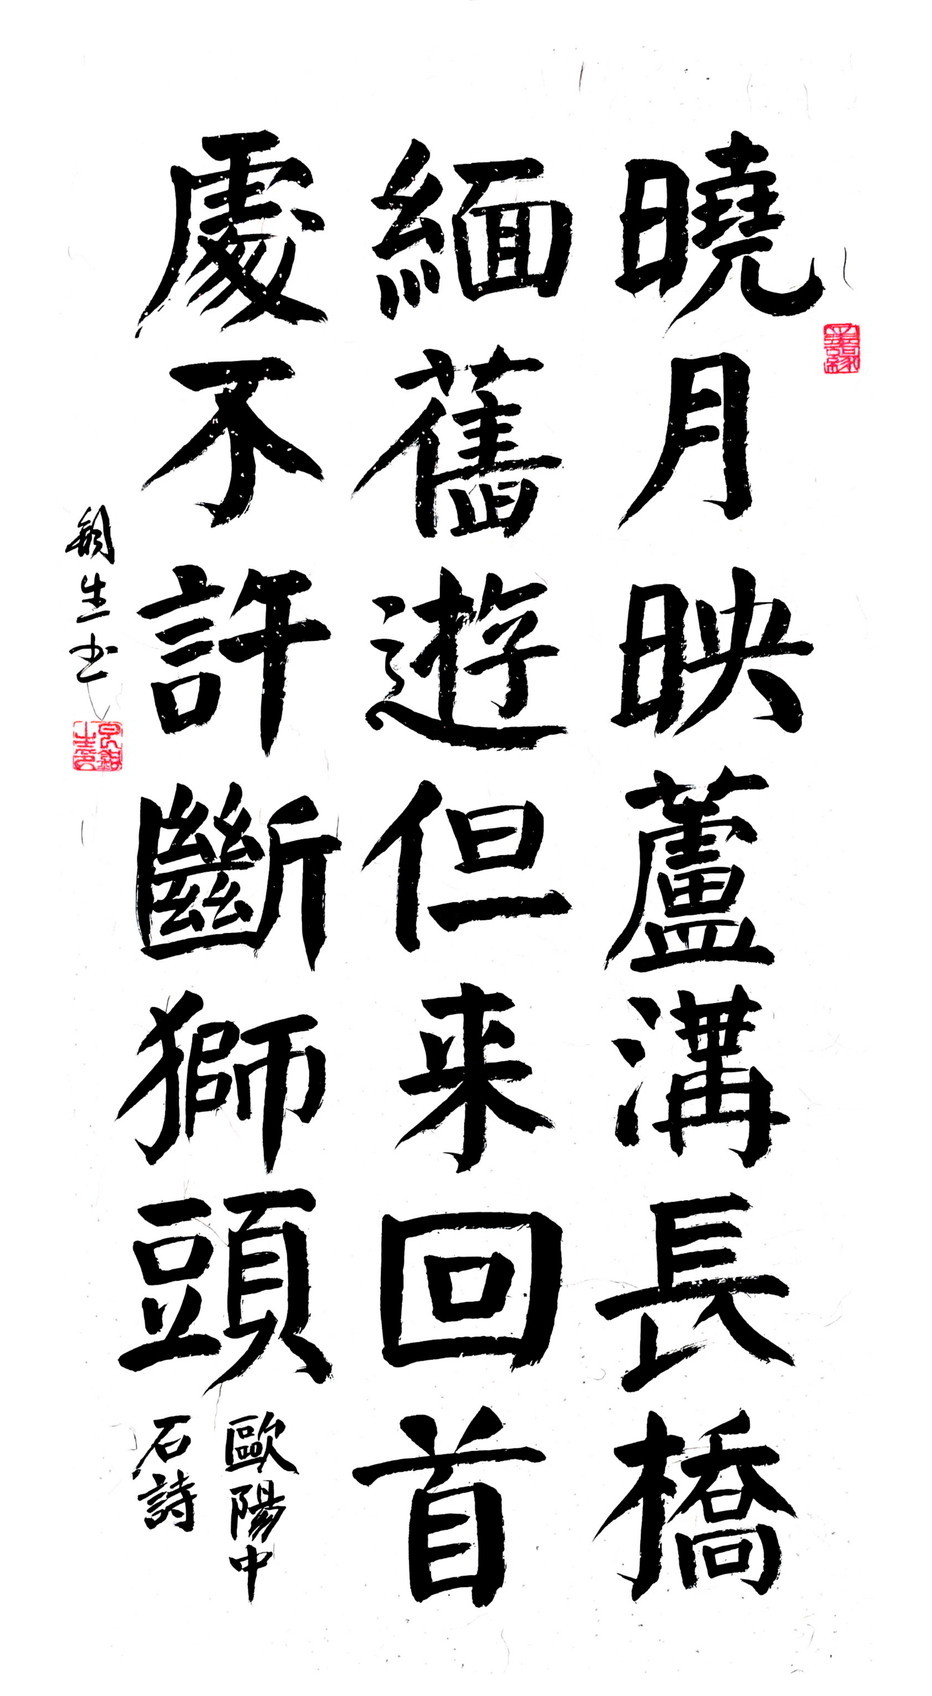 曉月映蘆溝長橋
緬舊遊但来回首
處不許斷獅頭
歐陽中
石詩
生书